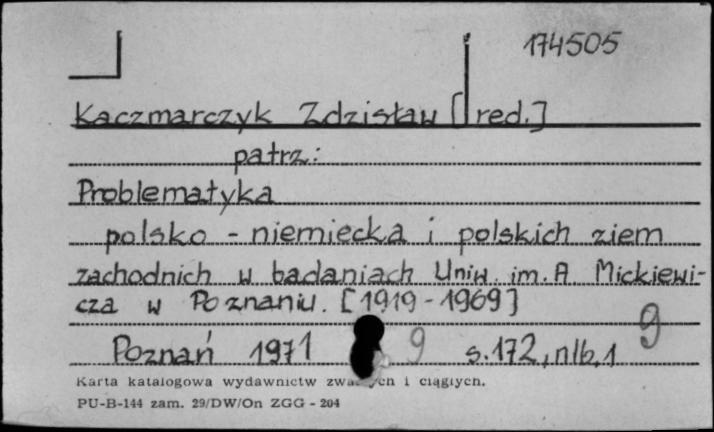 174505
Kaczmarczyk Zdzisław [red.]
patrz:
Problematyka
polsko - niemiecka i polskich ziem
zachodnich w badaniach Uniw. im. A Mickiewi-
cza w Poznaniu. [1919 - 1969]
9
Poznań 1971 9 s. 172, nlb, 1
Karta katalogowa wydawnictw zwartych i ciągłych.
PU-B-144 zam. 29/DW/On ZGG - 204